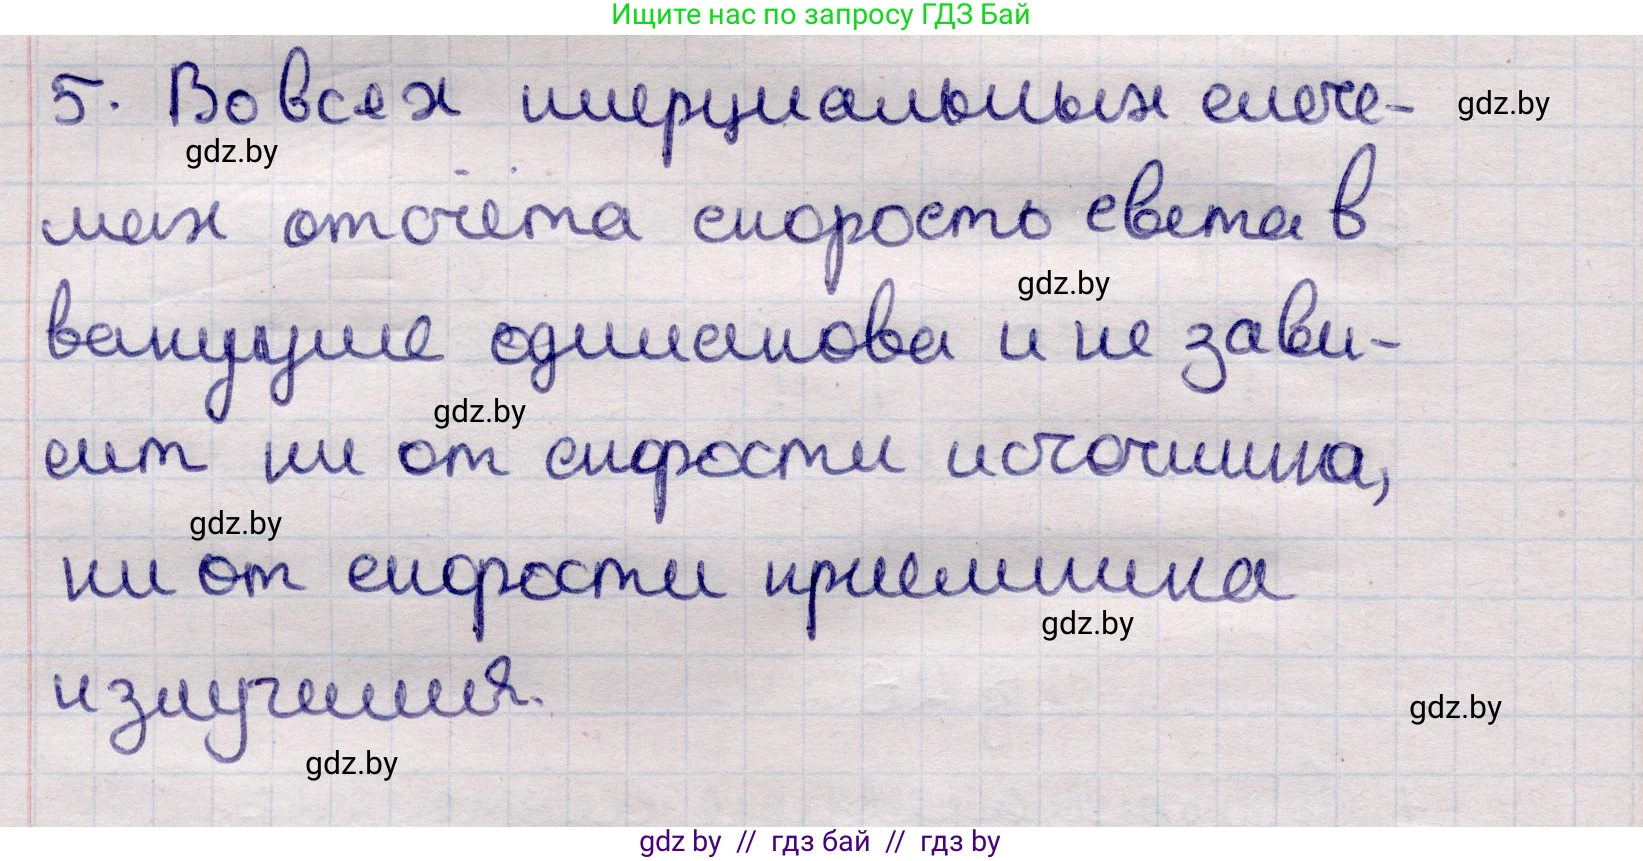 Ищите нас по запросу ГДЗ Бай
5. Во всех инерциальных систе- gdz.by
gdz.by
мах отсчёта скорость света в
gdz.by
вакууме одинакова и не зави-
gdz.by
сит ни от скорости источника,
gdz.by
ни от скорости приемника
gdz.by
излучения.
gdz.by
gdz.by
gdz by // гдз бай // гдз by